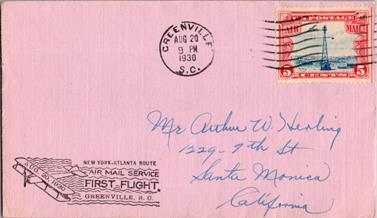 GREENVILLE
AUG 20
9 PM
1930
S.C.
U.S. POSTAGE
AIR MAIL
5 CENTS 5
Mr Arthur W Herling
1229-7th St
Santa Monica
California
NEW YORK-ATLANTA ROUTE
AIR MAIL SERVICE
FIRST FLIGHT
GREENVILLE, S.C.